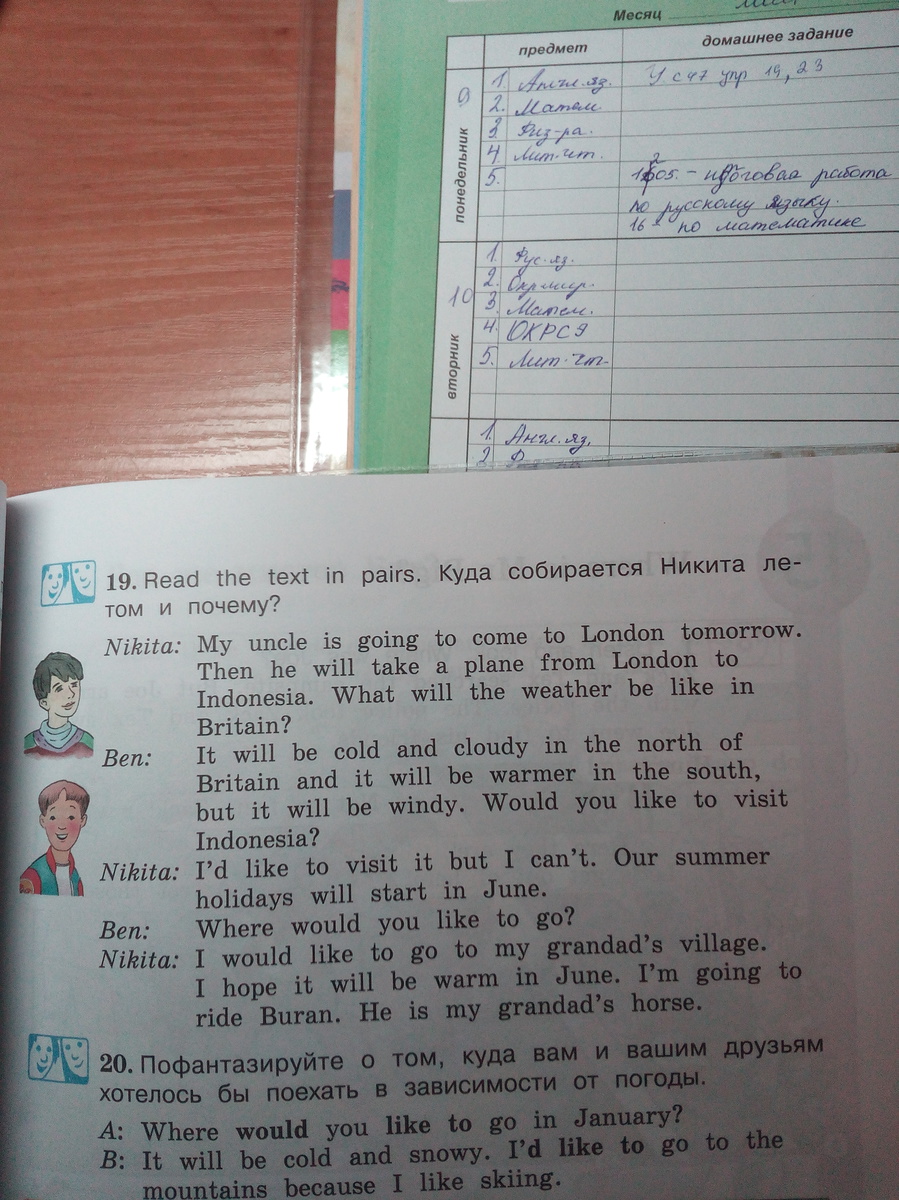 Месяц
предмет домашнее задание
понедельник 9
1. Англ.яз. У с 47 упр 19, 23
2. Матем
3. Физ-ра.
4. Лит.чт.
5. 1205. - итоговая работа
по русскому языку.
16 - по математике
вторник 10
1. Рус.яз.
2. Окр.мир.
3. Матем.
4. ЮКРСЯ
5. Лит.чт.
1. Англ.яз.
2
19. Read the text in pairs. Куда собирается Никита ле-
том и почему?
Nikita: My uncle is going to come to London tomorrow.
Then he will take a plane from London to
Indonesia. What will the weather be like in
Britain?
Ben: It will be cold and cloudy in the north of
Britain and it will be warmer in the south,
but it will be windy. Would you like to visit
Indonesia?
Nikita: I’d like to visit it but I can’t. Our summer
holidays will start in June.
Ben: Where would you like to go?
Nikita: I would like to go to my grandad’s village.
I hope it will be warm in June. I’m going to
ride Buran. He is my grandad’s horse.
20. Пофантазируйте о том, куда вам и вашим друзьям
хотелось бы поехать в зависимости от погоды.
A: Where would you like to go in January?
B: It will be cold and snowy. I’d like to go to the
mountains because I like skiing.